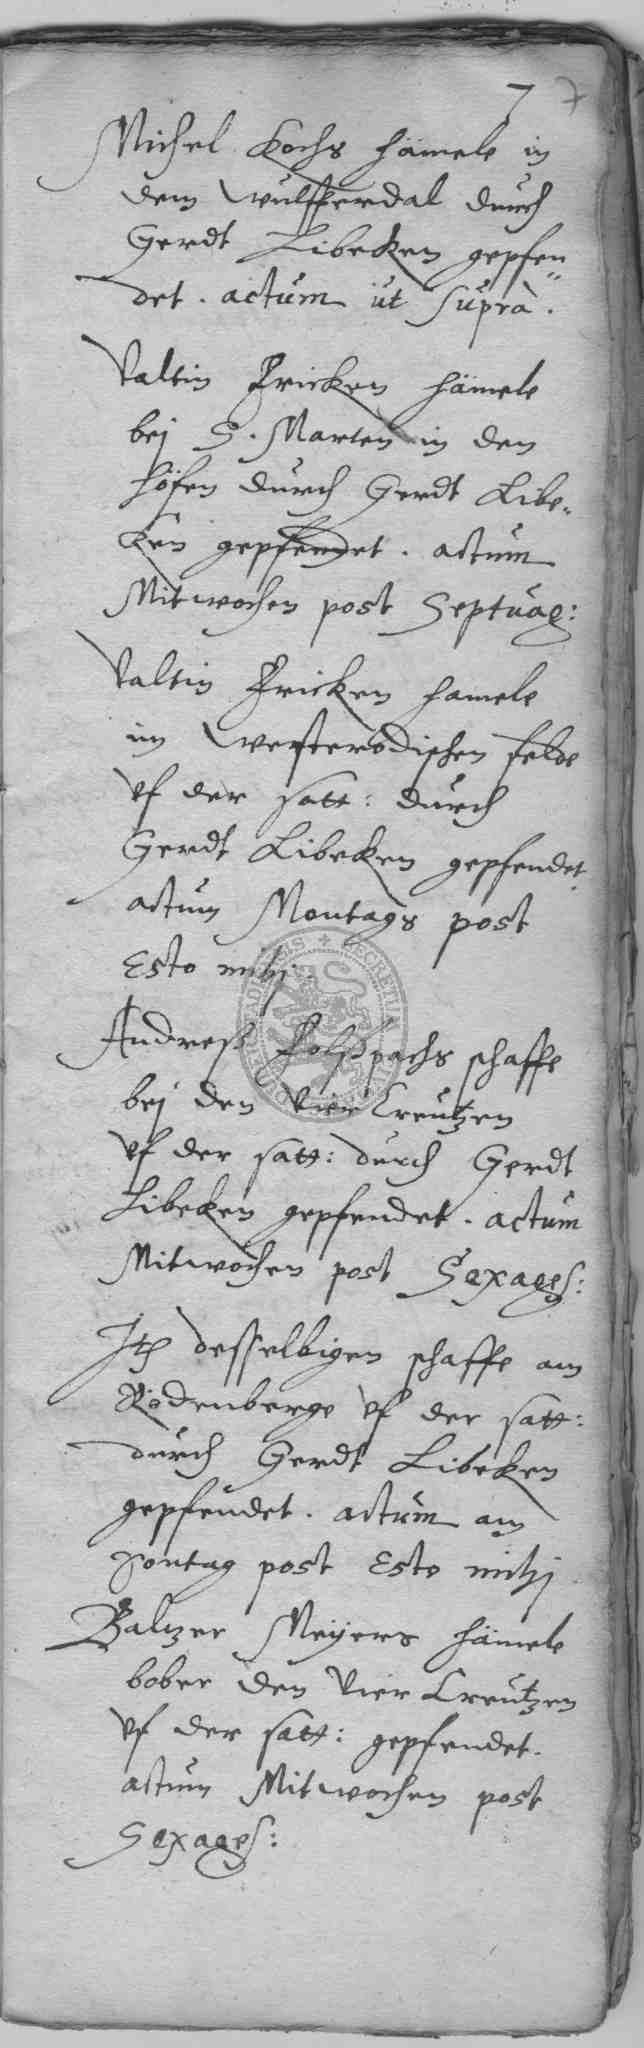 7 7
Michel Kochs hämele in
dem Wulfferdal durch
Gerdt Libeken gepfen„
det. actum ut suprà.
Valtin Fricken hämele
bej S. Marten in den
höfen durch Gerdt Libe„
ken gepfendet. actum
Mitwochen post Septuag:
Valtin Fricken hamele
im Westerodischen felde
vf der satt: durch
Gerdt Libeken gepfendet.
actum Montags post
Esto mihj.
Andreß Polßpachs schaffe
bej den Vier Creutzen
vf der satt: durch Gerdt
Libeken gepfendet. actum
Mitwochen post Sexages:
It desselbigen schaffe am
Rodenberge vf der satt:
durch Gerdt Libeken
gepfendet. actum am
Sontag post Esto mihj
Baltzer Meÿers hämele
bober den Vier Creutzen
vf der satt: gepfendet.
actum Mitwochen post
Sexages: